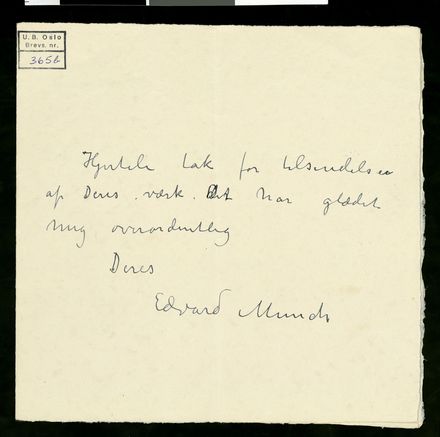 U. B. Oslo
Brevs. nr.
365b
Hjertelig tak for tilsendelsen
af Deres værk. Det har glædet
mig overordentlig
Deres
Edvard Munch